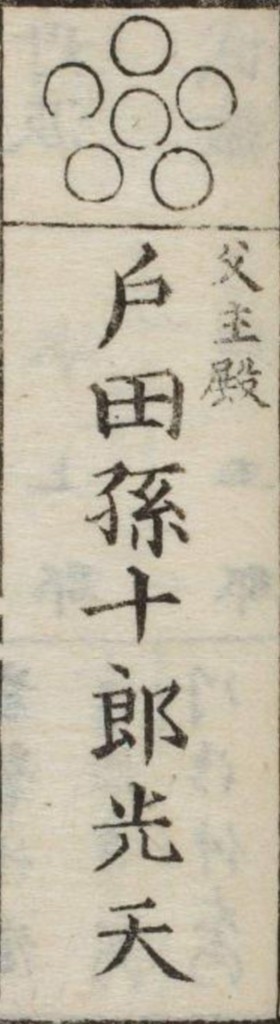 父主殿
戸田孫十郎光天